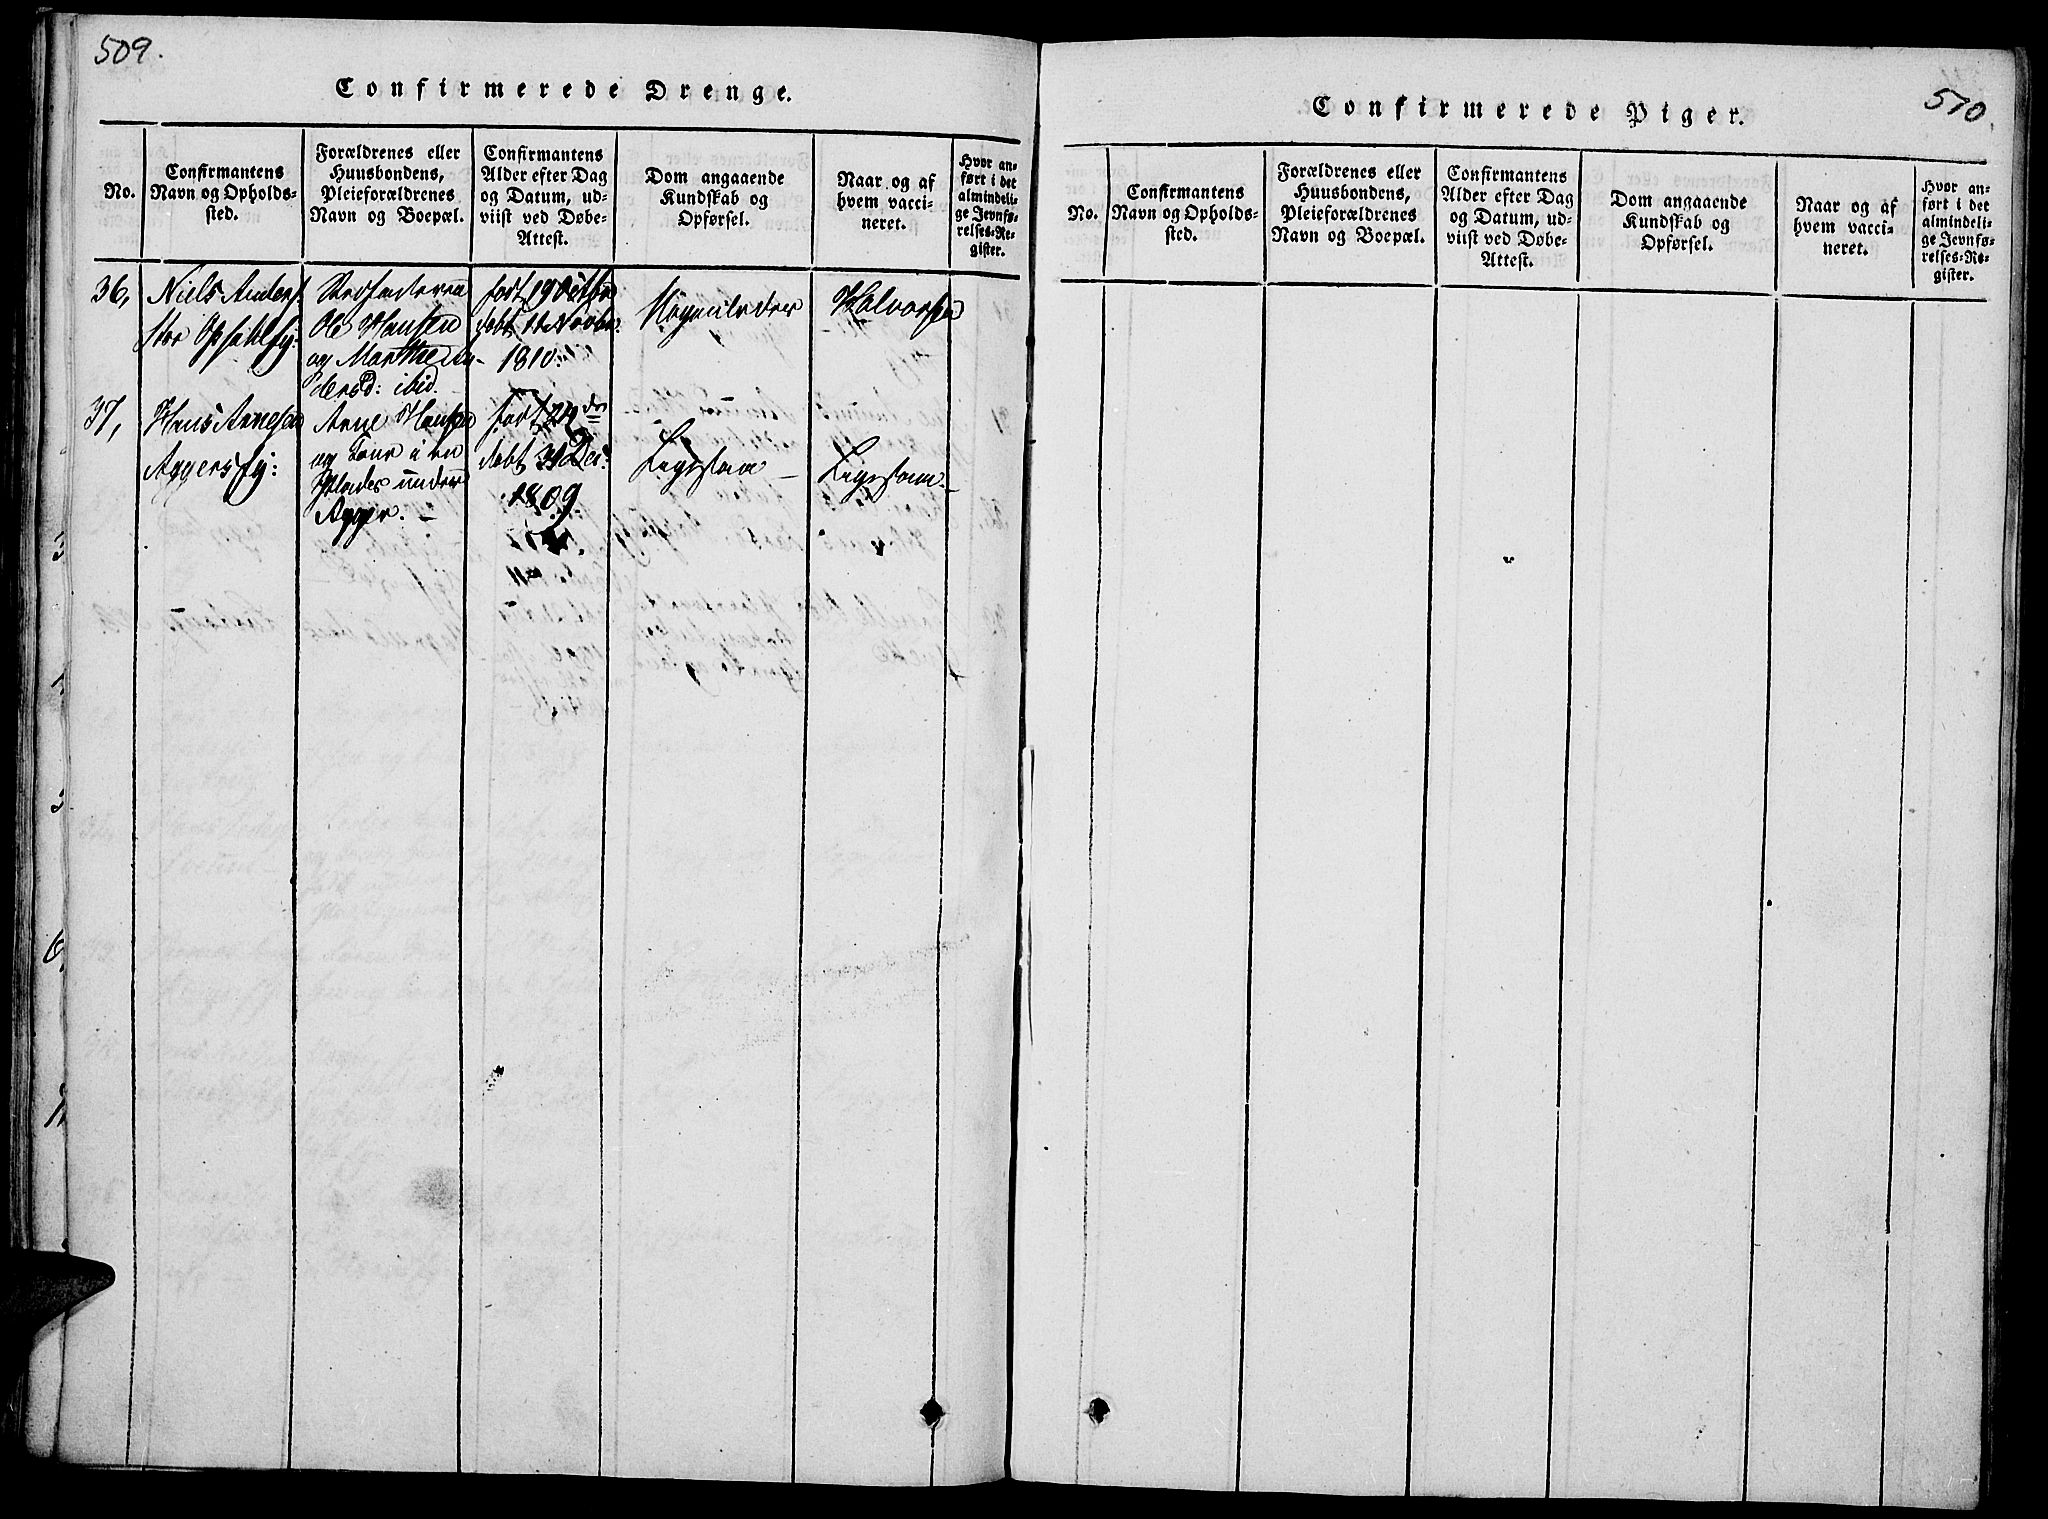 509.
Confirmerede Drenge.
No.
Confirmantens
Navn og Opholds-
sted.
Forældrenes eller
Huusbondens,
Pleieforældrenes
Navn og Boepæl.
Confirmantens
Alder efter Dag
og Datum, ud-
viist ved Døbe-
Attest.
Dom angaaende
Kundskab og
Opførsel.
Naar og af
hvem vacci-
neret.
Hvor an-
ført i det
almindeli-
ge Jevnfø-
relses-Re-
gister.
36,
Niels Anders:
Stor Opsahlej:
Stedfaderen
Ole Hansen
og Marthe An-
dersd: ibid.
født 19 Octbr
døbt 11 Novbr.
1810.
Halvorsen
37,
Hans Arnesen
Aggersej:
Arne Hansen
og Kone i en
Pladse under
Agger. –
født 24de
døbt 31 Dec:
1809.
Ligesaa –
Ligesaa. –
510.
Confirmerede Piger.
No.
Confirmantens
Navn og Opholds-
sted.
Forældrenes eller
Huusbondens,
Pleieforældrenes
Navn og Boepæl.
Confirmantens
Alder efter Dag
og Datum, ud-
viist ved Døbe-
Attest.
Dom angaaende
Kundskab og
Opførsel.
Naar og af
hvem vacci-
neret.
Hvor an-
ført i det
almindeli-
ge Jevnfø-
relses-Re-
gister.